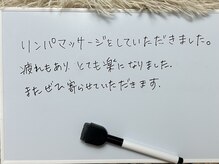 リンパマッサージをしていただきました。
疲れもあり とても楽になりました。
またぜひ寄らせていただきます.